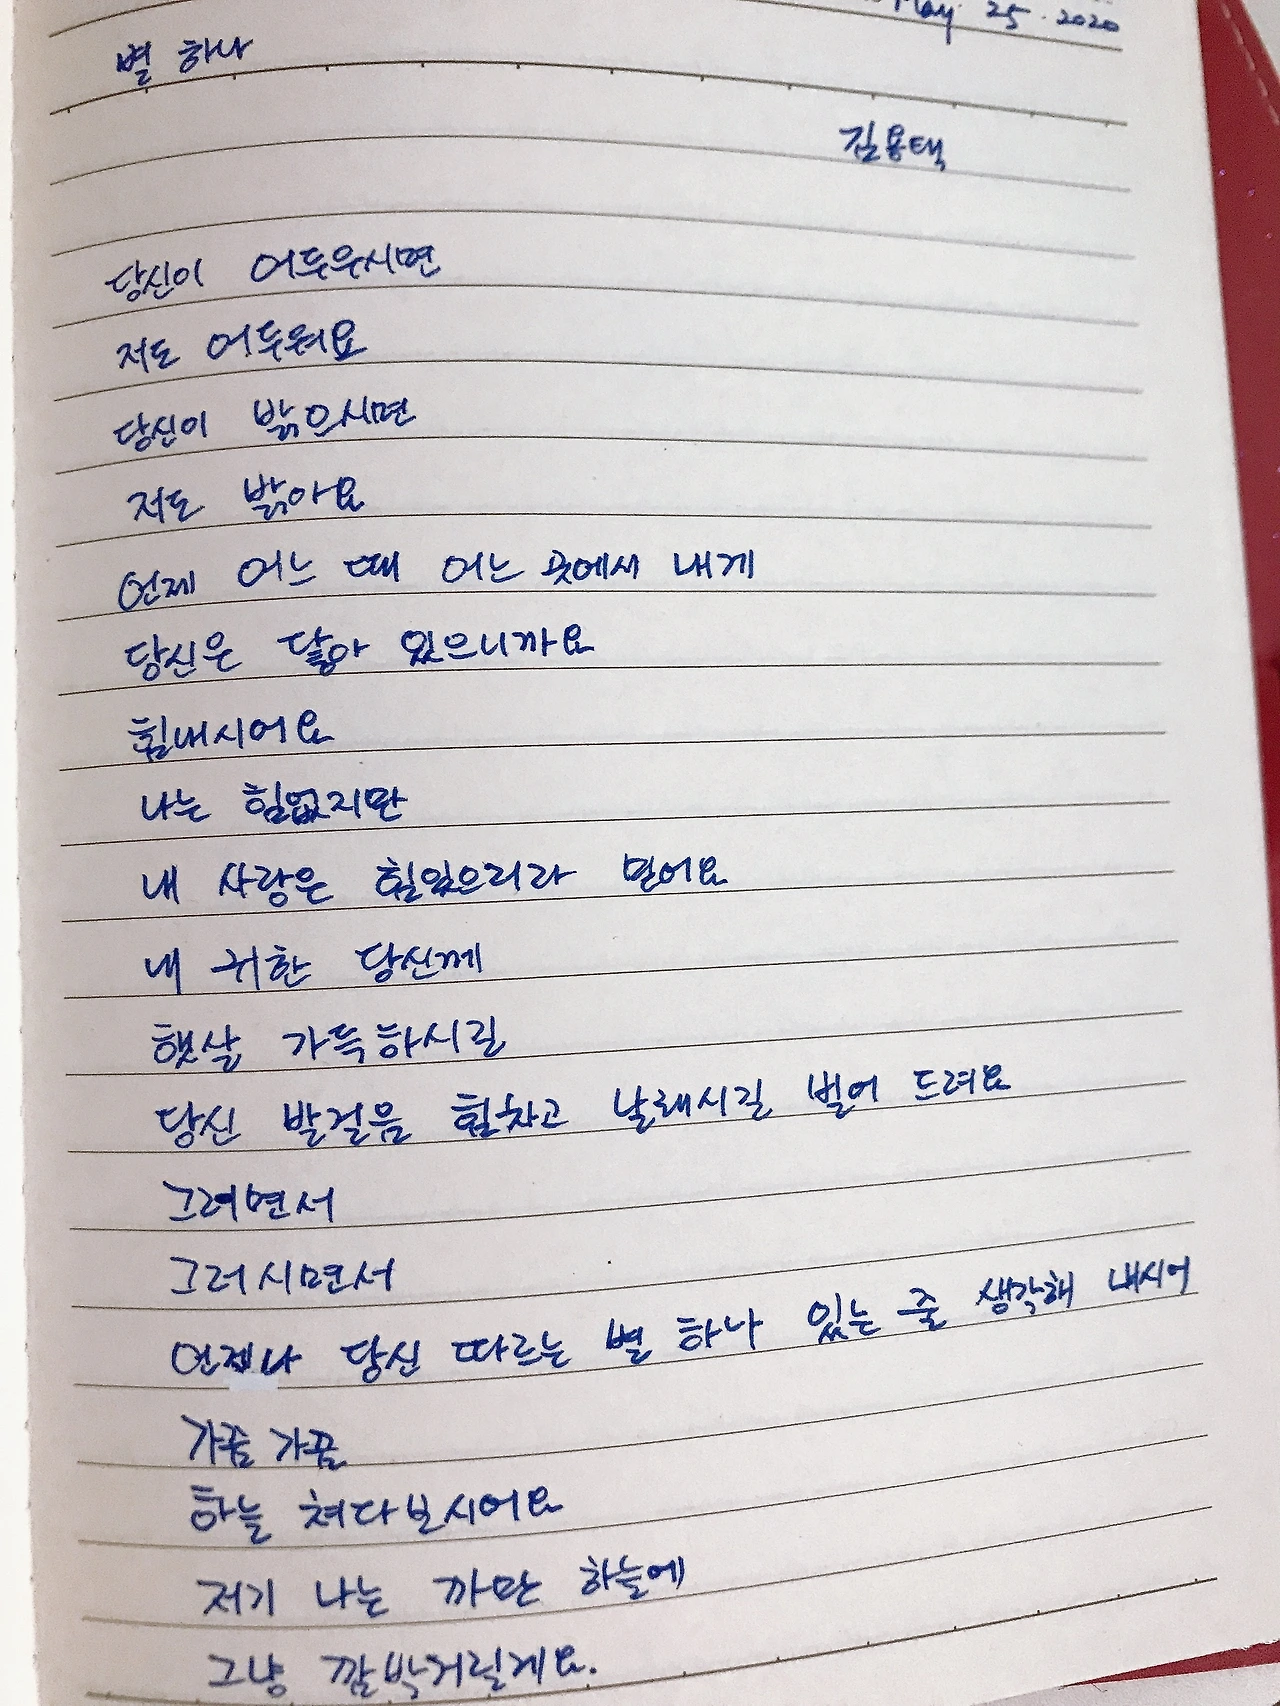 May. 25. 2020
별 하나
김용택
당신이 어두우시면
저도 어두워요
당신이 밝으시면
저도 밝아요
언제 어느 때 어느 곳에서 내게
당신은 닿아 있으니까요
힘내시어요
나는 힘없지만
내 사랑은 힘있으리라 믿어요
내 귀한 당신께
햇살 가득하시길
당신 발걸음 힘차고 날래시길 빌어 드려요
그려면서
그러시면서
언제나 당신 따르는 별 하나 있는 줄 생각해 내시어
가끔가끔
하늘 쳐다보시어요
저기 나는 까만 하늘에
그냥 깜박거릴게요.